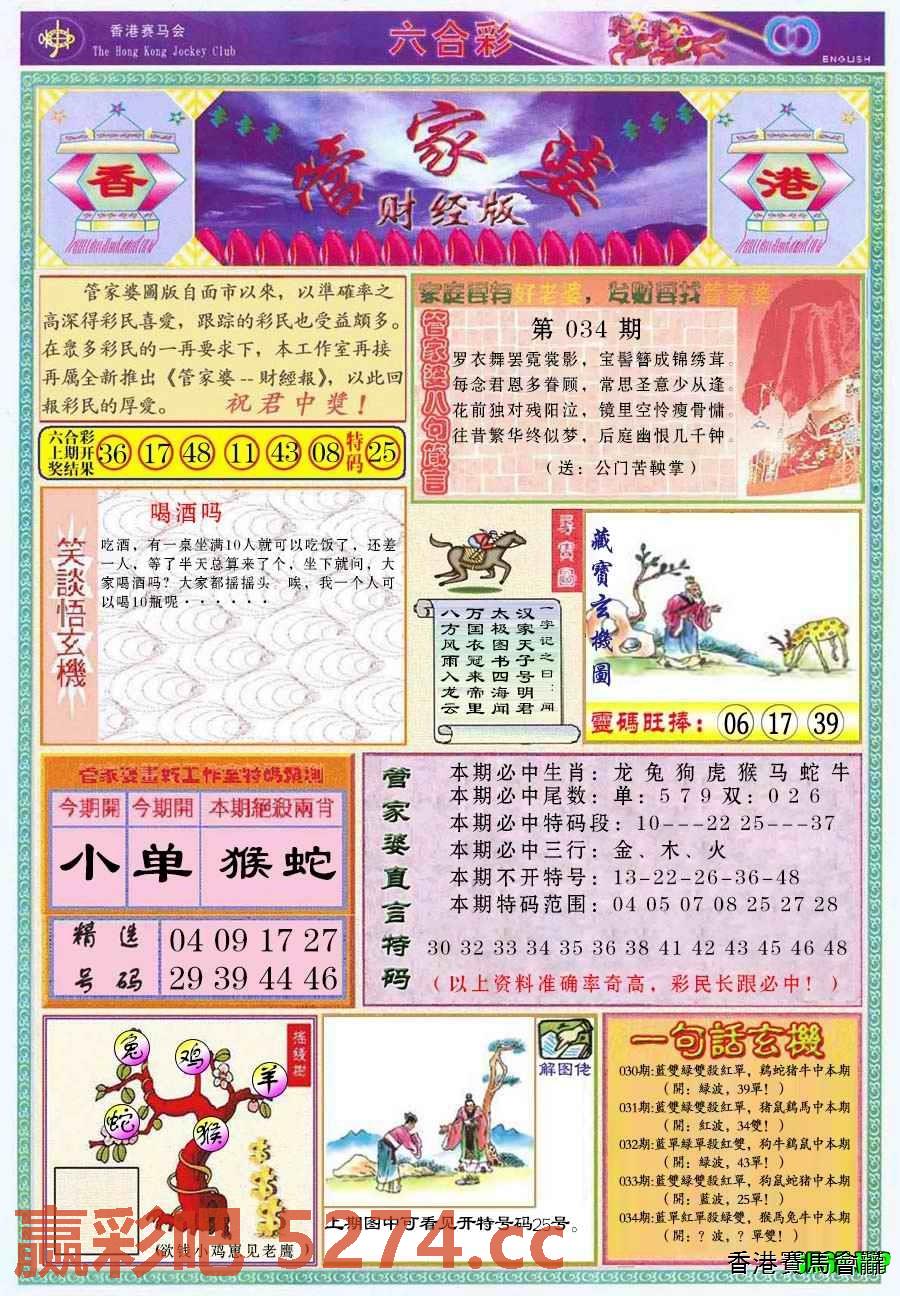 香港赛马会
The Hong Kong Jockey Club
六合彩
ENGLISH
香
管家婆
财经版
港
管家婆圖版自面市以來，以準確率之
高深得彩民喜愛，跟踪的彩民也受益頗多。
在衆多彩民的一再要求下，本工作室再接
再厲全新推出《管家婆--財經報》，以此回
報彩民的厚愛。 祝君中獎！
六合彩
上期开
奖结果
36 17 48 11 43 08 特码 25
好老婆，发财要找管家婆
管家婆八句箴言
第 034 期
罗衣舞罢霓裳影，宝髻簪成锦绣茸。
每念君恩多眷顾，常思圣意少从逢。
花前独对残阳泣，镜里空怜瘦骨慵。
往昔繁华终似梦，后庭幽恨几千钟。
（送：公门苦鞅掌）
笑談悟玄機
喝酒吗
吃酒，有一桌坐满10人就可以吃饭了，还差
一人，等了半天总算来了个，坐下就问，大
家喝酒吗？大家都摇摇头。唉，我一个人可
以喝10瓶呢······
尋寶圖
一字记之曰：闻
汉家天子号明君
太极图书四海闻
万国衣冠来帝里
八方风雨入龙云
藏寶玄機圖
靈碼旺捧：06 17 39
今期開 今期開 本期絕殺兩肖
小 单 猴蛇
精选
号码
04 09 17 27
29 39 44 46
管家婆直言特码
本期必中生肖：龙 兔 狗 虎 猴 马 蛇 牛
本期必中尾数：单：5 7 9 双：0 2 6
本期必中特码段：10---22 25---37
本期必中三行：金、木、火
本期不开特号：13-22-26-36-48
本期特码范围：04 05 07 08 25 27 28
30 32 33 34 35 36 38 41 42 43 45 46 48
（以上资料准确率奇高，彩民长跟必中！）
摇錢樹
兔
鸡
羊
蛇
猴
（欲钱小鸡崽见老鹰）
解图佬
上期图中可看见开特号码25号。
一句話玄機
030期:藍雙綠雙殺紅單，鷄蛇猪牛中本期
（開：緑波，39單！）
031期:藍雙緑雙殺紅單，猪鼠鷄馬中本期
（開：紅波，34雙！）
032期:藍單緑單殺紅雙，狗牛鷄鼠中本期
（開：緑波，43單！）
033期:藍雙緑雙殺紅單，狗鼠蛇猪中本期
（開：藍波，25單！）
034期:藍單紅單殺緑雙，猴馬兔牛中本期
（開：？波，？單雙！）
赢彩吧 5274.cc
香港賽馬會